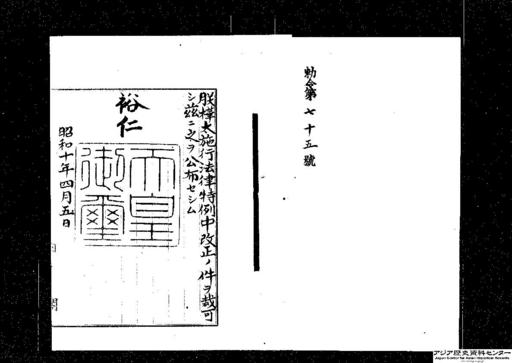 勅令第七十五號
朕樺太施行法律特例中改正ノ件ヲ裁可
シ茲ニ之ヲ公布セシム
裕仁
天皇
御璽
昭和十年四月五日
内閣
アジア歴史資料センター
Japan Center for Asian Historical Records